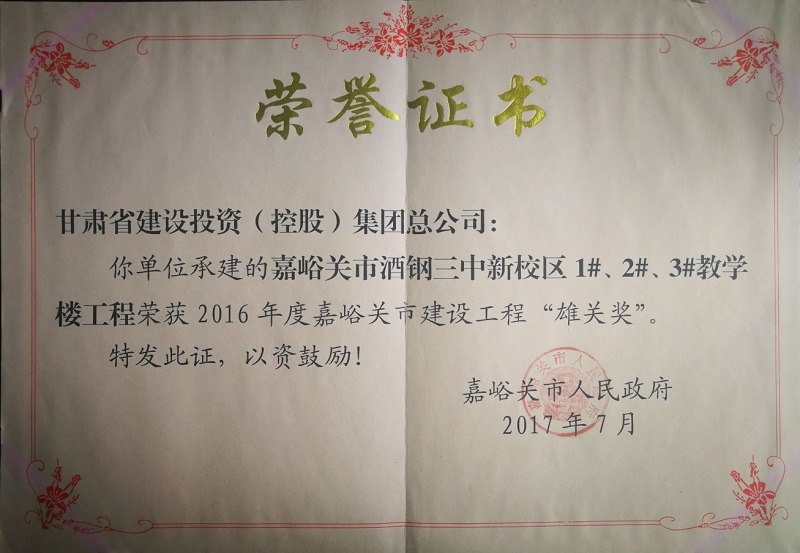 荣誉证书
甘肃省建设投资（控股）集团总公司：
你单位承建的嘉峪关市酒钢三中新校区1#、2#、3#教学
楼工程荣获2016年度嘉峪关市建设工程“雄关奖”。
特发此证，以资鼓励！
嘉峪关市人民政府
2017年7月